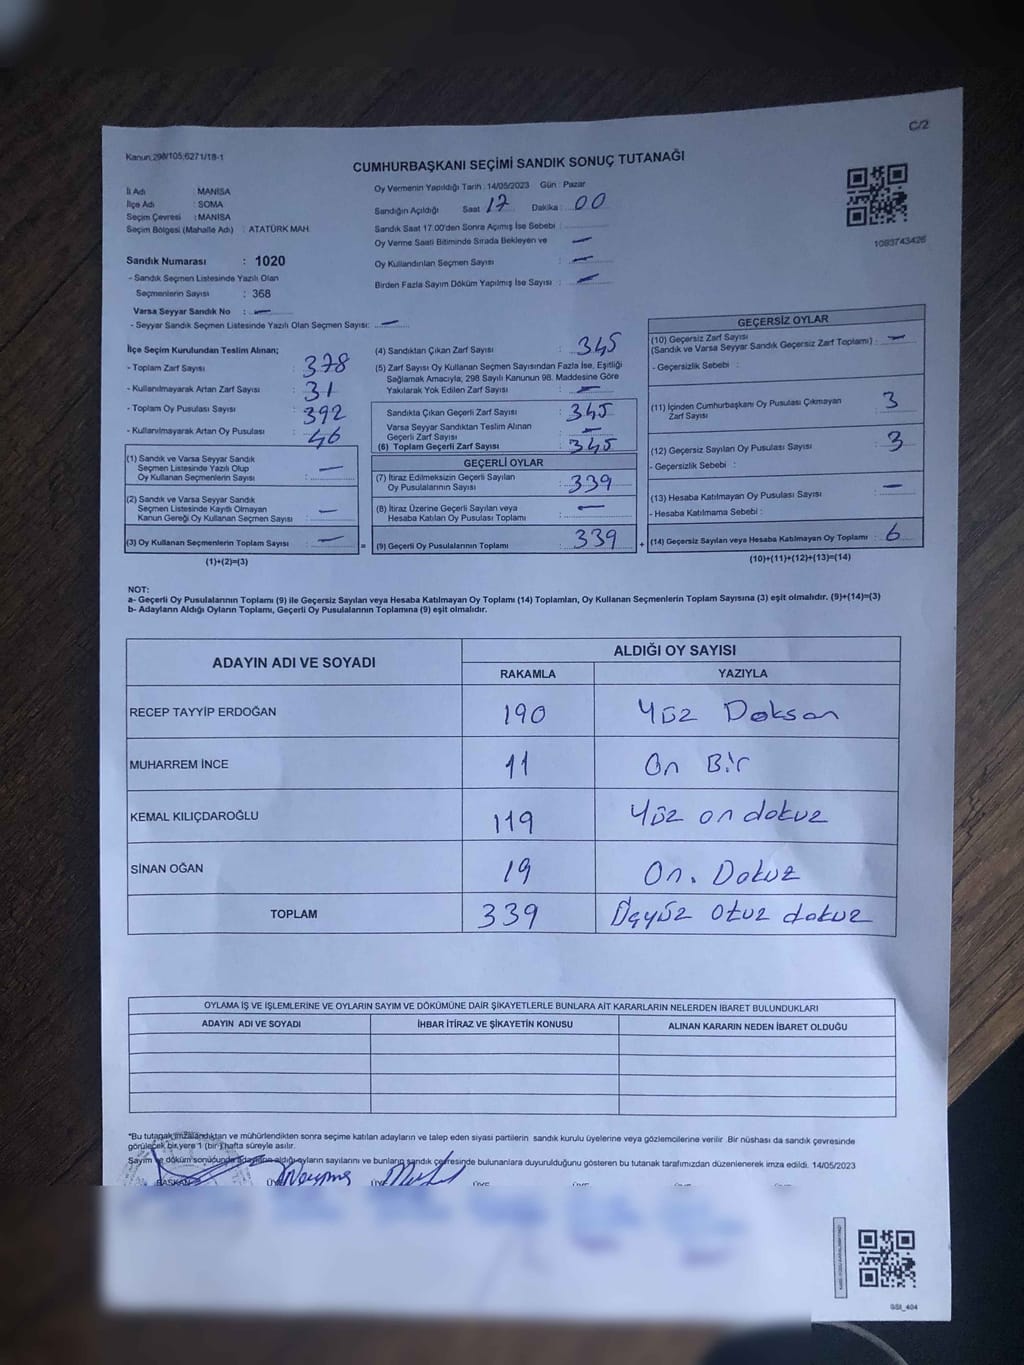 C/2
Kanun.298/105,6271/18-1
CUMHURBAŞKANI SEÇİMİ SANDIK SONUÇ TUTANAĞI
İl Adı MANİSA
İlçe Adı : SOMA
Seçim Çevresi : MANİSA
Seçim Bölgesi (Mahalle Adı) : ATATÜRK MAH.
Oy Vermenin Yapıldığı Tarih : 14/05/2023 Gün : Pazar
Sandığın Açıldığı Saat : 17 Dakika : 00
Sandık Saat 17.00'den Sonra Açımış İse Sebebi :
Oy Verme Saati Bitiminde Sırada Bekleyen ve : —
Oy Kullandırılan Seçmen Sayısı : —
Birden Fazla Sayım Döküm Yapılmış İse Sayısı : —
1093743426
Sandık Numarası : 1020
- Sandık Seçmen Listesinde Yazılı Olan
Seçmenlerin Sayısı : 368
Varsa Seyyar Sandık No : —
- Seyyar Sandık Seçmen Listesinde Yazılı Olan Seçmen Sayısı: —
İlçe Seçim Kurulundan Teslim Alınan;
- Toplam Zarf Sayısı : 378
- Kullanılmayarak Artan Zarf Sayısı : 31
- Toplam Oy Pusulası Sayısı : 392
- Kullanılmayarak Artan Oy Pusulası : 46
(1) Sandık ve Varsa Seyyar Sandık
Seçmen Listesinde Yazılı Olup
Oy Kullanan Seçmenlerin Sayısı : —
(2) Sandık ve Varsa Seyyar Sandık
Seçmen Listesinde Kayıtlı Olmayan
Kanun Gereği Oy Kullanan Seçmen Sayısı : —
(3) Oy Kullanan Seçmenlerin Toplam Sayısı : —
(1)+(2)=(3)
(4) Sandıktan Çıkan Zarf Sayısı : 345
(5) Zarf Sayısı Oy Kullanan Seçmen Sayısından Fazla İse, Eşitliği
Sağlamak Amacıyla, 298 Sayılı Kanunun 98. Maddesine Göre
Yakılarak Yok Edilen Zarf Sayısı : —
Sandıkta Çıkan Geçerli Zarf Sayısı : 345
Varsa Seyyar Sandıktan Teslim Alınan
Geçerli Zarf Sayısı : —
(6) Toplam Geçerli Zarf Sayısı : 345
GEÇERLİ OYLAR
(7) İtiraz Edilmeksizin Geçerli Sayılan
Oy Pusulalarının Sayısı : 339
(8) İtiraz Üzerine Geçerli Sayılan veya
Hesaba Katılan Oy Pusulası Toplamı : —
= (9) Geçerli Oy Pusulalarının Toplamı : 339
GEÇERSİZ OYLAR
(10) Geçersiz Zarf Sayısı
(Sandık ve Varsa Seyyar Sandık Geçersiz Zarf Toplamı) : —
- Geçersizlik Sebebi :
(11) İçinden Cumhurbaşkanı Oy Pusulası Çıkmayan
Zarf Sayısı : 3
(12) Geçersiz Sayılan Oy Pusulası Sayısı : 3
- Geçersizlik Sebebi :
(13) Hesaba Katılmayan Oy Pusulası Sayısı : —
- Hesaba Katılmama Sebebi :
+ (14) Geçersiz Sayılan veya Hesaba Katılmayan Oy Toplamı : 6
(10)+(11)+(12)+(13)=(14)
NOT:
a- Geçerli Oy Pusulalarının Toplamı (9) ile Geçersiz Sayılan veya Hesaba Katılmayan Oy Toplamı (14) Toplamları, Oy Kullanan Seçmenlerin Toplam Sayısına (3) eşit olmalıdır. (9)+(14)=(3)
b- Adayların Aldığı Oyların Toplamı, Geçerli Oy Pusulalarının Toplamına (9) eşit olmalıdır.
ADAYIN ADI VE SOYADI
ALDIĞI OY SAYISI
RAKAMLA YAZIYLA
RECEP TAYYİP ERDOĞAN 190 Yüz Doksan
MUHARREM İNCE 11 On Bir
KEMAL KILIÇDAROĞLU 119 Yüz on dokuz
SİNAN OĞAN 19 On. Dokuz
TOPLAM 339 Üçyüz otuz dokuz
OYLAMA İŞ VE İŞLEMLERİNE VE OYLARIN SAYIM VE DÖKÜMÜNE DAİR ŞİKAYETLERLE BUNLARA AİT KARARLARIN NELERDEN İBARET BULUNDUKLARI
ADAYIN ADI VE SOYADI İHBAR İTİRAZ VE ŞİKAYETİN KONUSU ALINAN KARARIN NEDEN İBARET OLDUĞU
*Bu tutanak imzalandıktan ve mühürlendikten sonra seçime katılan adayların ve talep eden siyasi partilerin sandık kurulu üyelerine veya gözlemcilerine verilir. Bir nüshası da sandık çevresinde
görülecek bir yere 1 (bir) hafta süreyle asılır.
Sayım ve döküm sonucunda adayların aldığı oyların sayılarını ve bunların sandık çevresinde bulunanlara duyurulduğunu gösteren bu tutanak tarafımızdan düzenlenerek imza edildi. 14/05/2023
BAŞKAN ÜYE ÜYE ÜYE ÜYE ÜYE
GSI_404